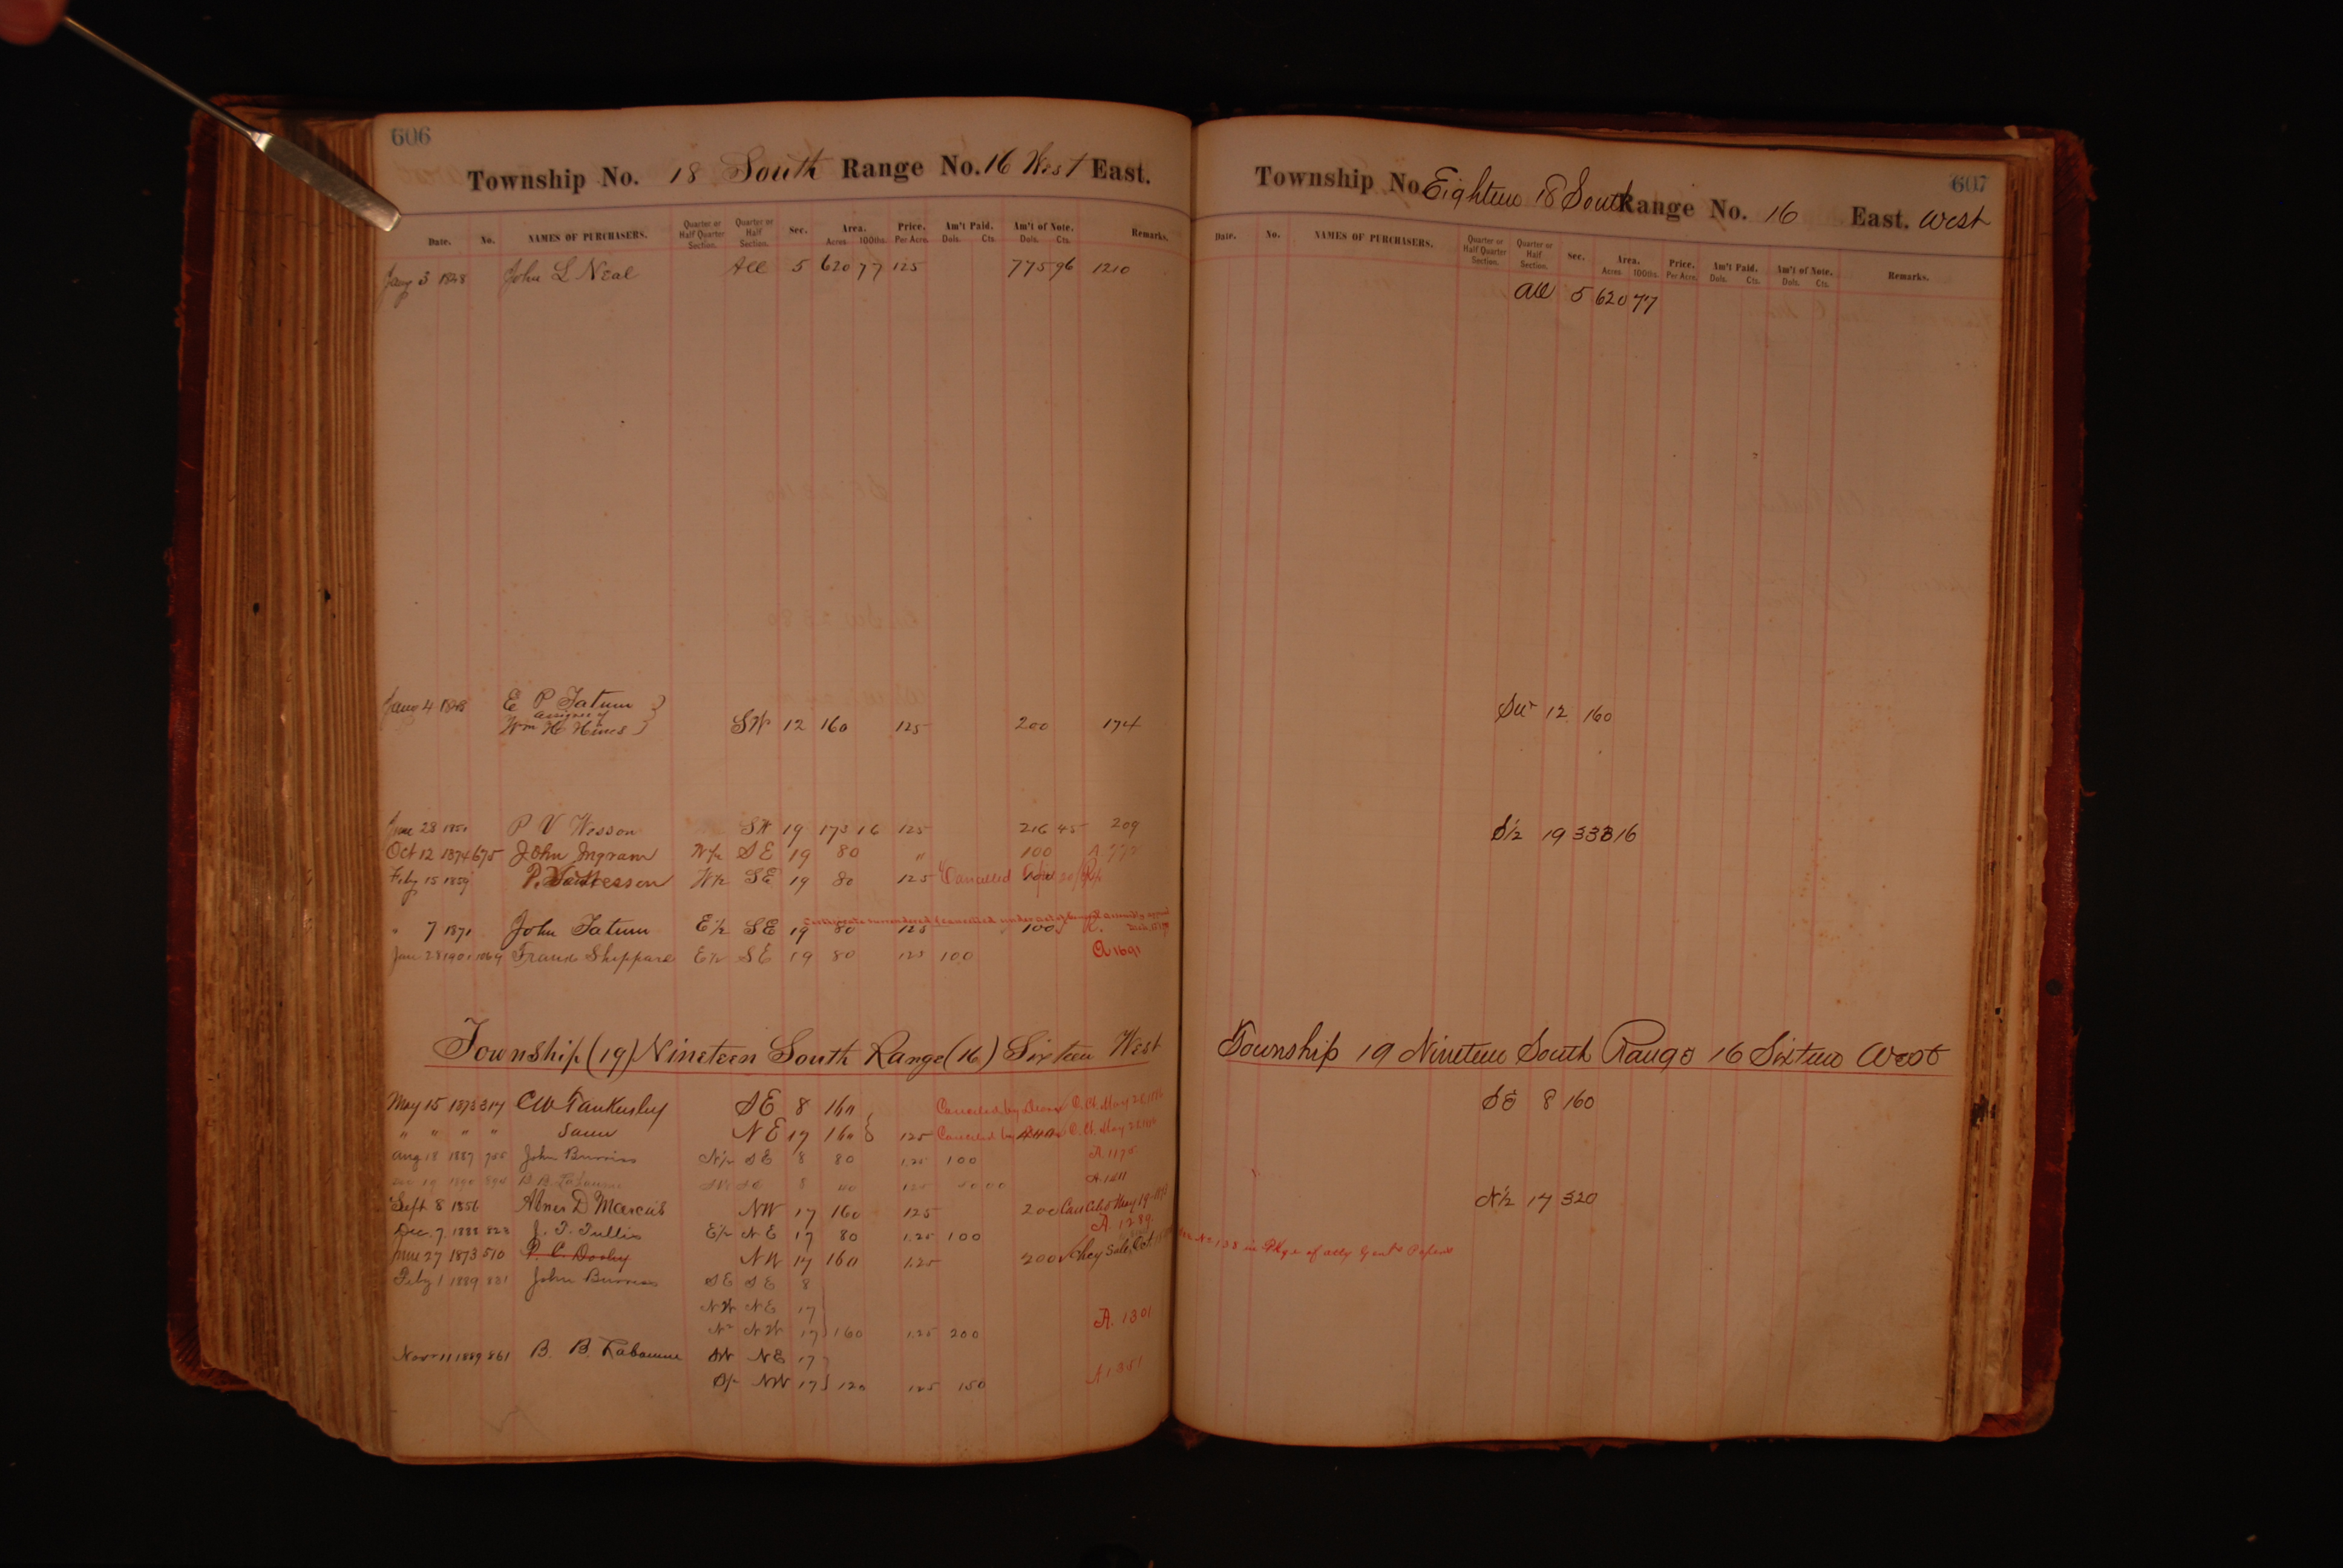 606
Township No. 18 South Range No. 16 West East.
Date. No. NAMES OF PURCHASERS. Quarter or Half Quarter Section. Quarter or Half Section. Sec. Area. Acres 100ths. Price. Per Acre. Am't Paid. Dols. Cts. Am't of Note. Dols. Cts. Remarks.
3 1848 John L Neal All 5 620 77 125 775 96 1210
4 1848 E P Tatum
assignee of
Wm H Hines SW 12 160 125 200 174
June 28 1851 P V Wesson SW 19 173 16 125 216 45 209
Oct 12 1874 675 John Ingram W½ SE 19 80 " 100 A
Feby 15 1859 P. Wesson W½ SE 19 80 125 Cancelled 100
Certificate surrendered & cancelled under act of General Assembly
" 7 1871 John Tatum E½ SE 19 80 125 100
Jan 28 1901 1069 Frank Sheppard E½ SE 19 80 125 100 A 1691
Township (19) Nineteen South Range (16) Sixteen West
May 15 1873 317 CW Tankersley SE 8 160 Cancelled by Ch. Ct. May 1886
" " " " Same NE 17 160 125 Cancelled by Ch. Ct. May
Aug 18 1887 755 John Burriss N½ SE 8 80 1.25 100 A. 1175
19 1890 8 40 125 50 00 A. 1411
Sept 8 1856 Abner D Marcus NW 17 160 125 200 Cancelled May 19
Dec. 7 1888 828 J. T. Tullis E½ NE 17 80 1.25 100 A. 1289.
June 27 1873 510 P. C. Dooley NW 17 160 1.25 200 Chcy Sale, Oct.
Feby 1 1889 831 John Burriss SE SE 8
NW NE 17
N½ NW 17 160 1.25 200 A. 1301
Novr 11 1889 861 B. B. Labaume SW NE 17
S½ NW 17 120 125 150 A 1351
607
Township No. Eighteen 18 South Range No. 16 East. West
Date. No. NAMES OF PURCHASERS. Quarter or Half Quarter Section. Quarter or Half Section. Sec. Area. Acres 100ths. Price. Per Acre. Am't Paid. Dols. Cts. Am't of Note. Dols. Cts. Remarks.
All 5 620 77
SW 12 160
S½ 19 333 16
Township 19 Nineteen South Range 16 Sixteen West
SE 8 160
N½ 17 320
No 138 in Pkge of Atty Genl's Papers